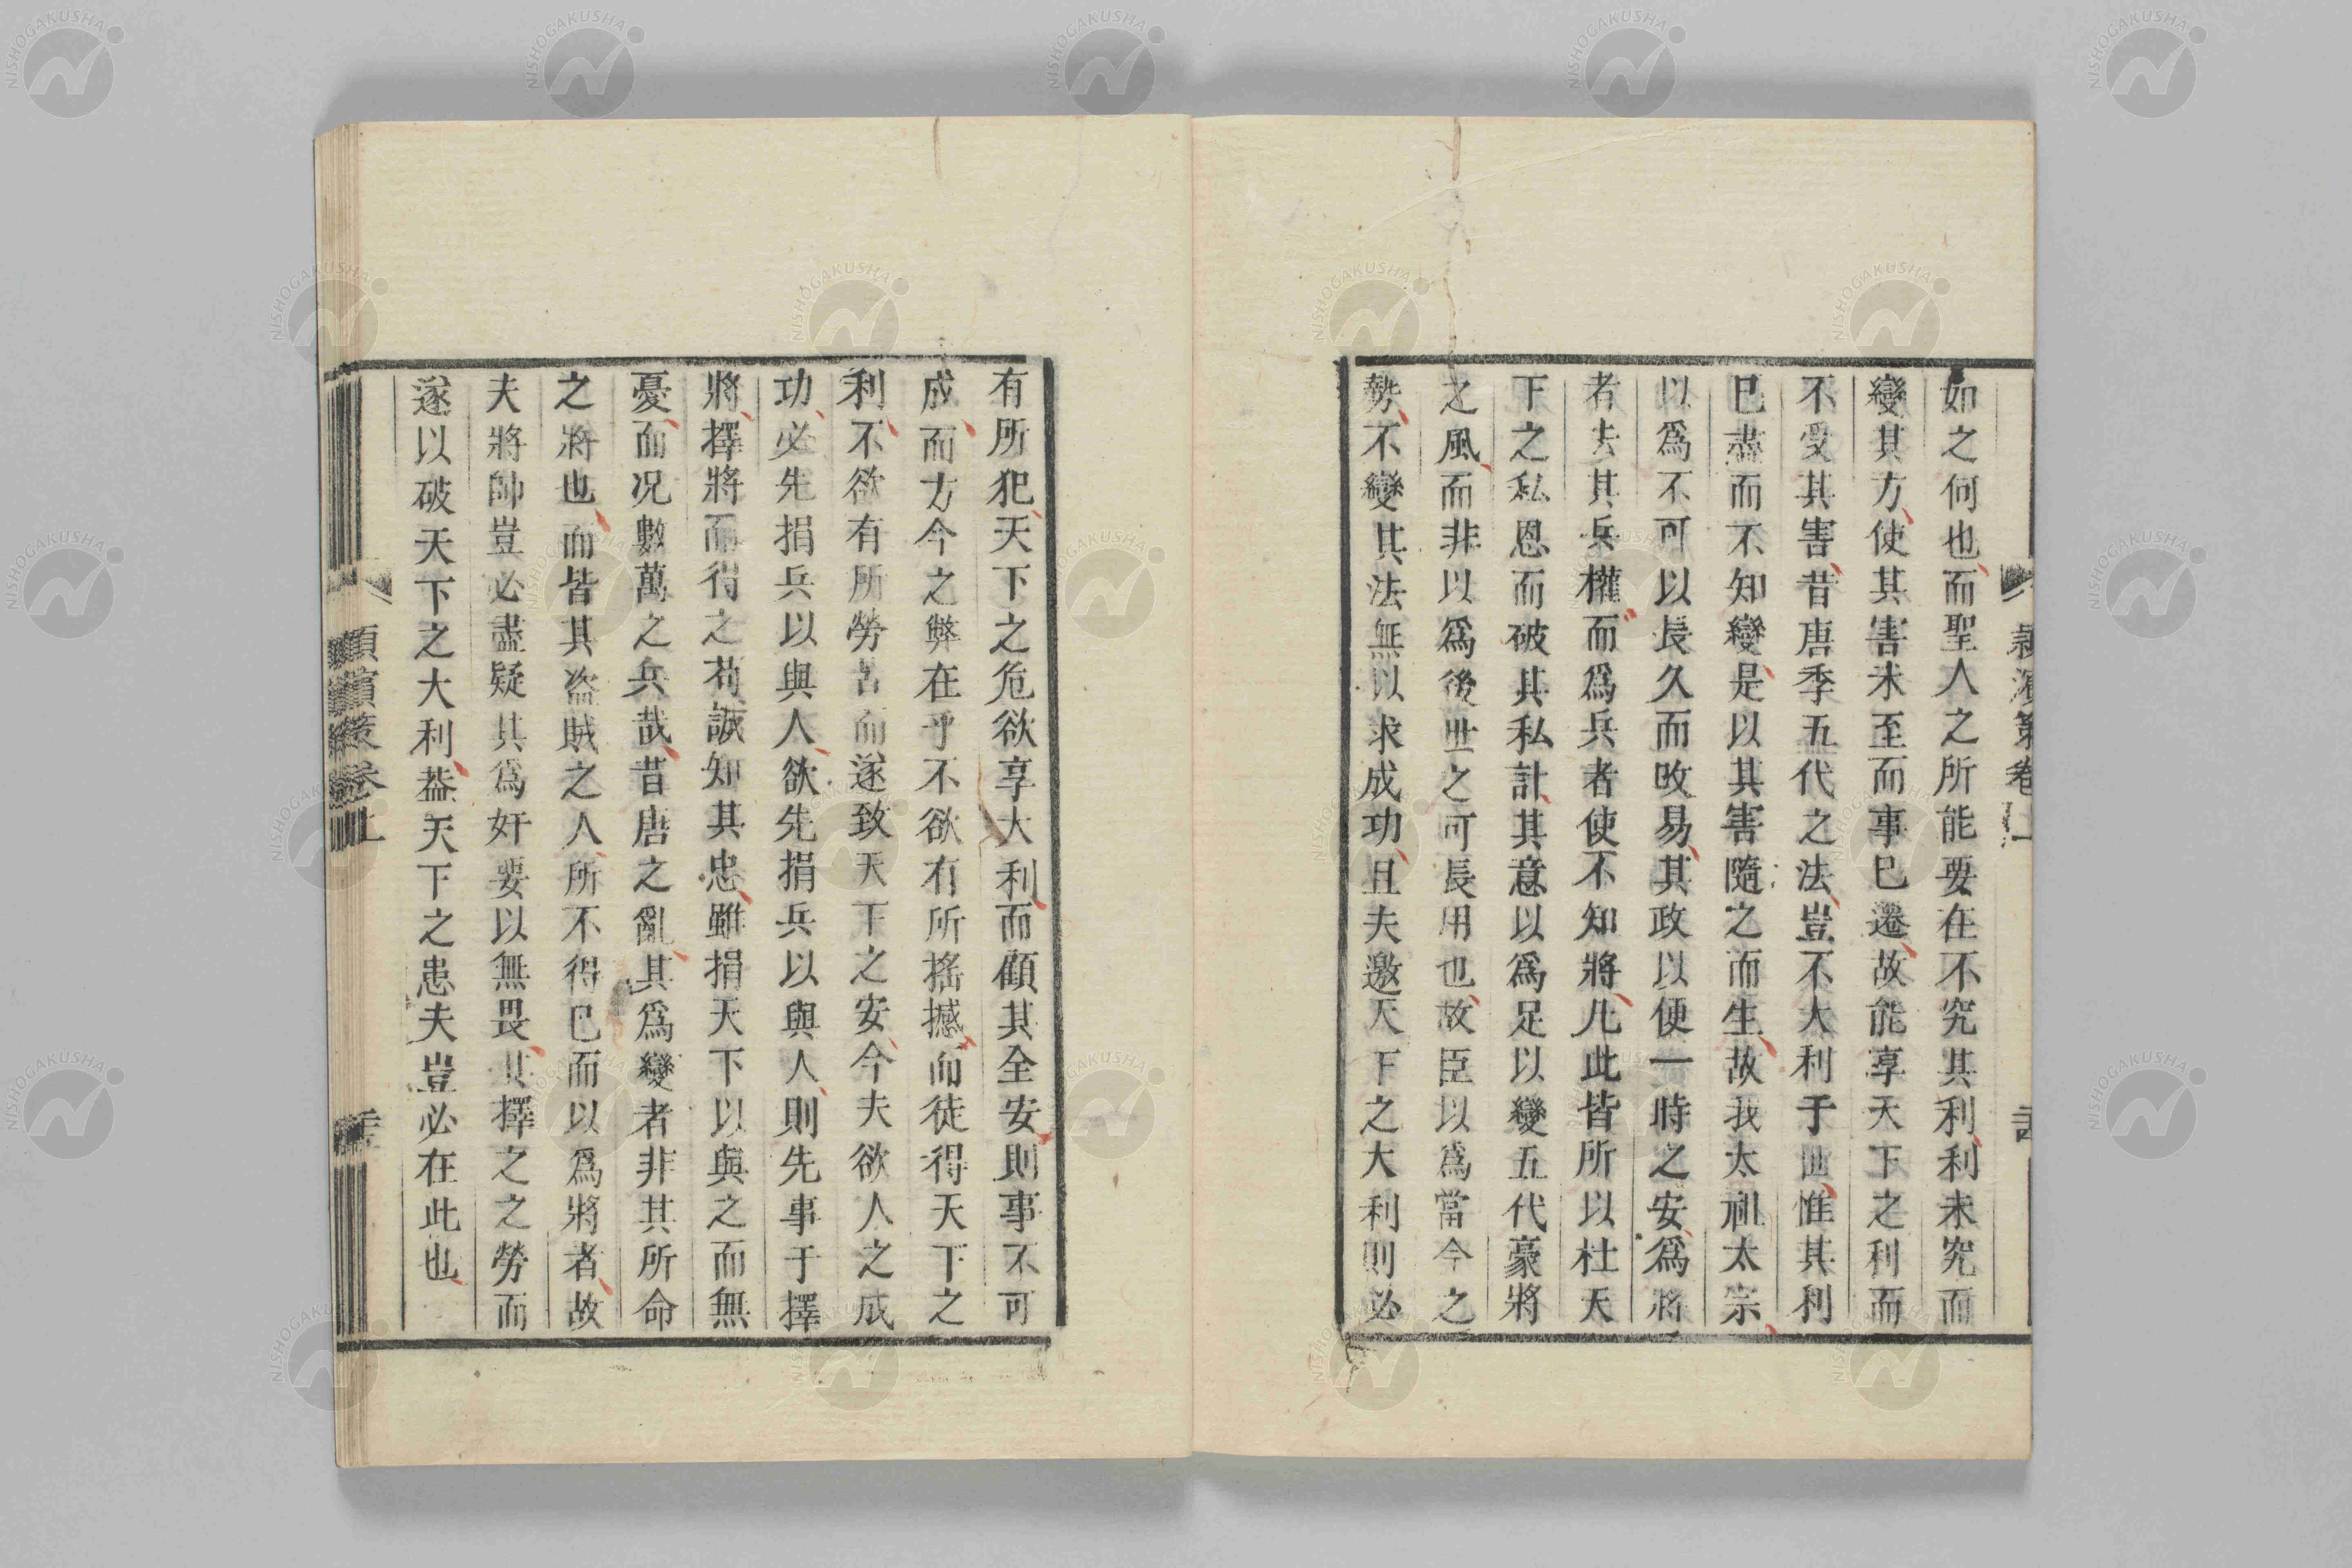 如之何也而聖人之所能要在不究其利利未究而
變其方使其害未至而事已遷故能享天下之利而
不受其害昔唐季五代之法豈不大利于世惟其利
已盡而不知變是以其害隨之而生故我太祖太宗
以爲不可以長久而攺易其政以便一時之安爲將
者去其兵權而爲兵者使不知將凡此皆所以杜天
下之私恩而破其私計其意以爲足以變五代豪將
之風而非以爲後世之可長用也故臣以爲當今之
勢不變其法無以求成功且夫邀天下之大利則必
有所犯天下之危欲享大利而顧其全安則事不可
成而方今之弊在乎不欲有所搖撼而徒得天下之
利不欲有所勞苦而遂致天下之安今夫欲人之成
功必先捐兵以與人欲先捐兵以與人則先事于擇
將擇將而得之苟誠知其忠雖捐天下以與之而無
憂而况數萬之兵哉昔唐之亂其爲變者非其所命
之將也而皆其盜賊之人所不得已而以爲將者故
夫將帥豈必盡疑其爲奸要以無畏其擇之之勞而
遂以破天下之大利葢天下之患夫豈必在此也
頴濱策卷上
NISHOGAKUSHA